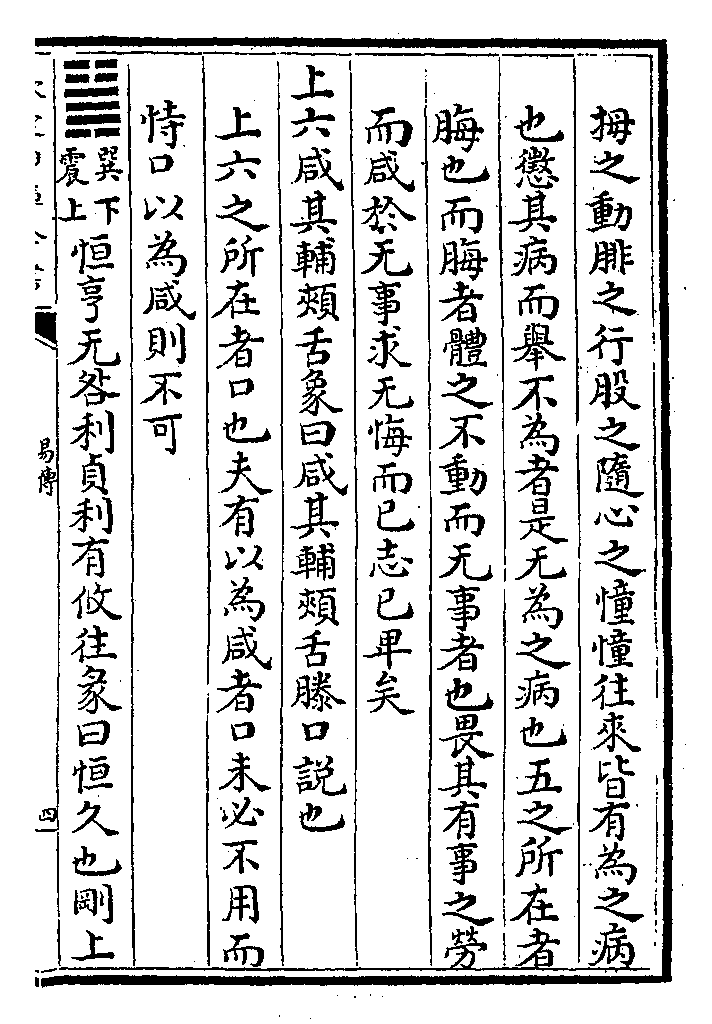 拇之動腓之行股之隨心之憧憧往來皆有為之病
也懲其病而舉不為者是无為之病也五之所在者
脢也而脢者體之不動而无事者也畏其有事之勞
而咸於无事求无悔而已志已卑矣
上六咸其輔頰舌象曰咸其輔頰舌滕口說也
上六之所在者口也夫有以為咸者口未必不用而
恃口以為咸則不可
䷟巽下震上恒亨无咎利貞利有攸往彖曰恒久也剛上
易傳
四